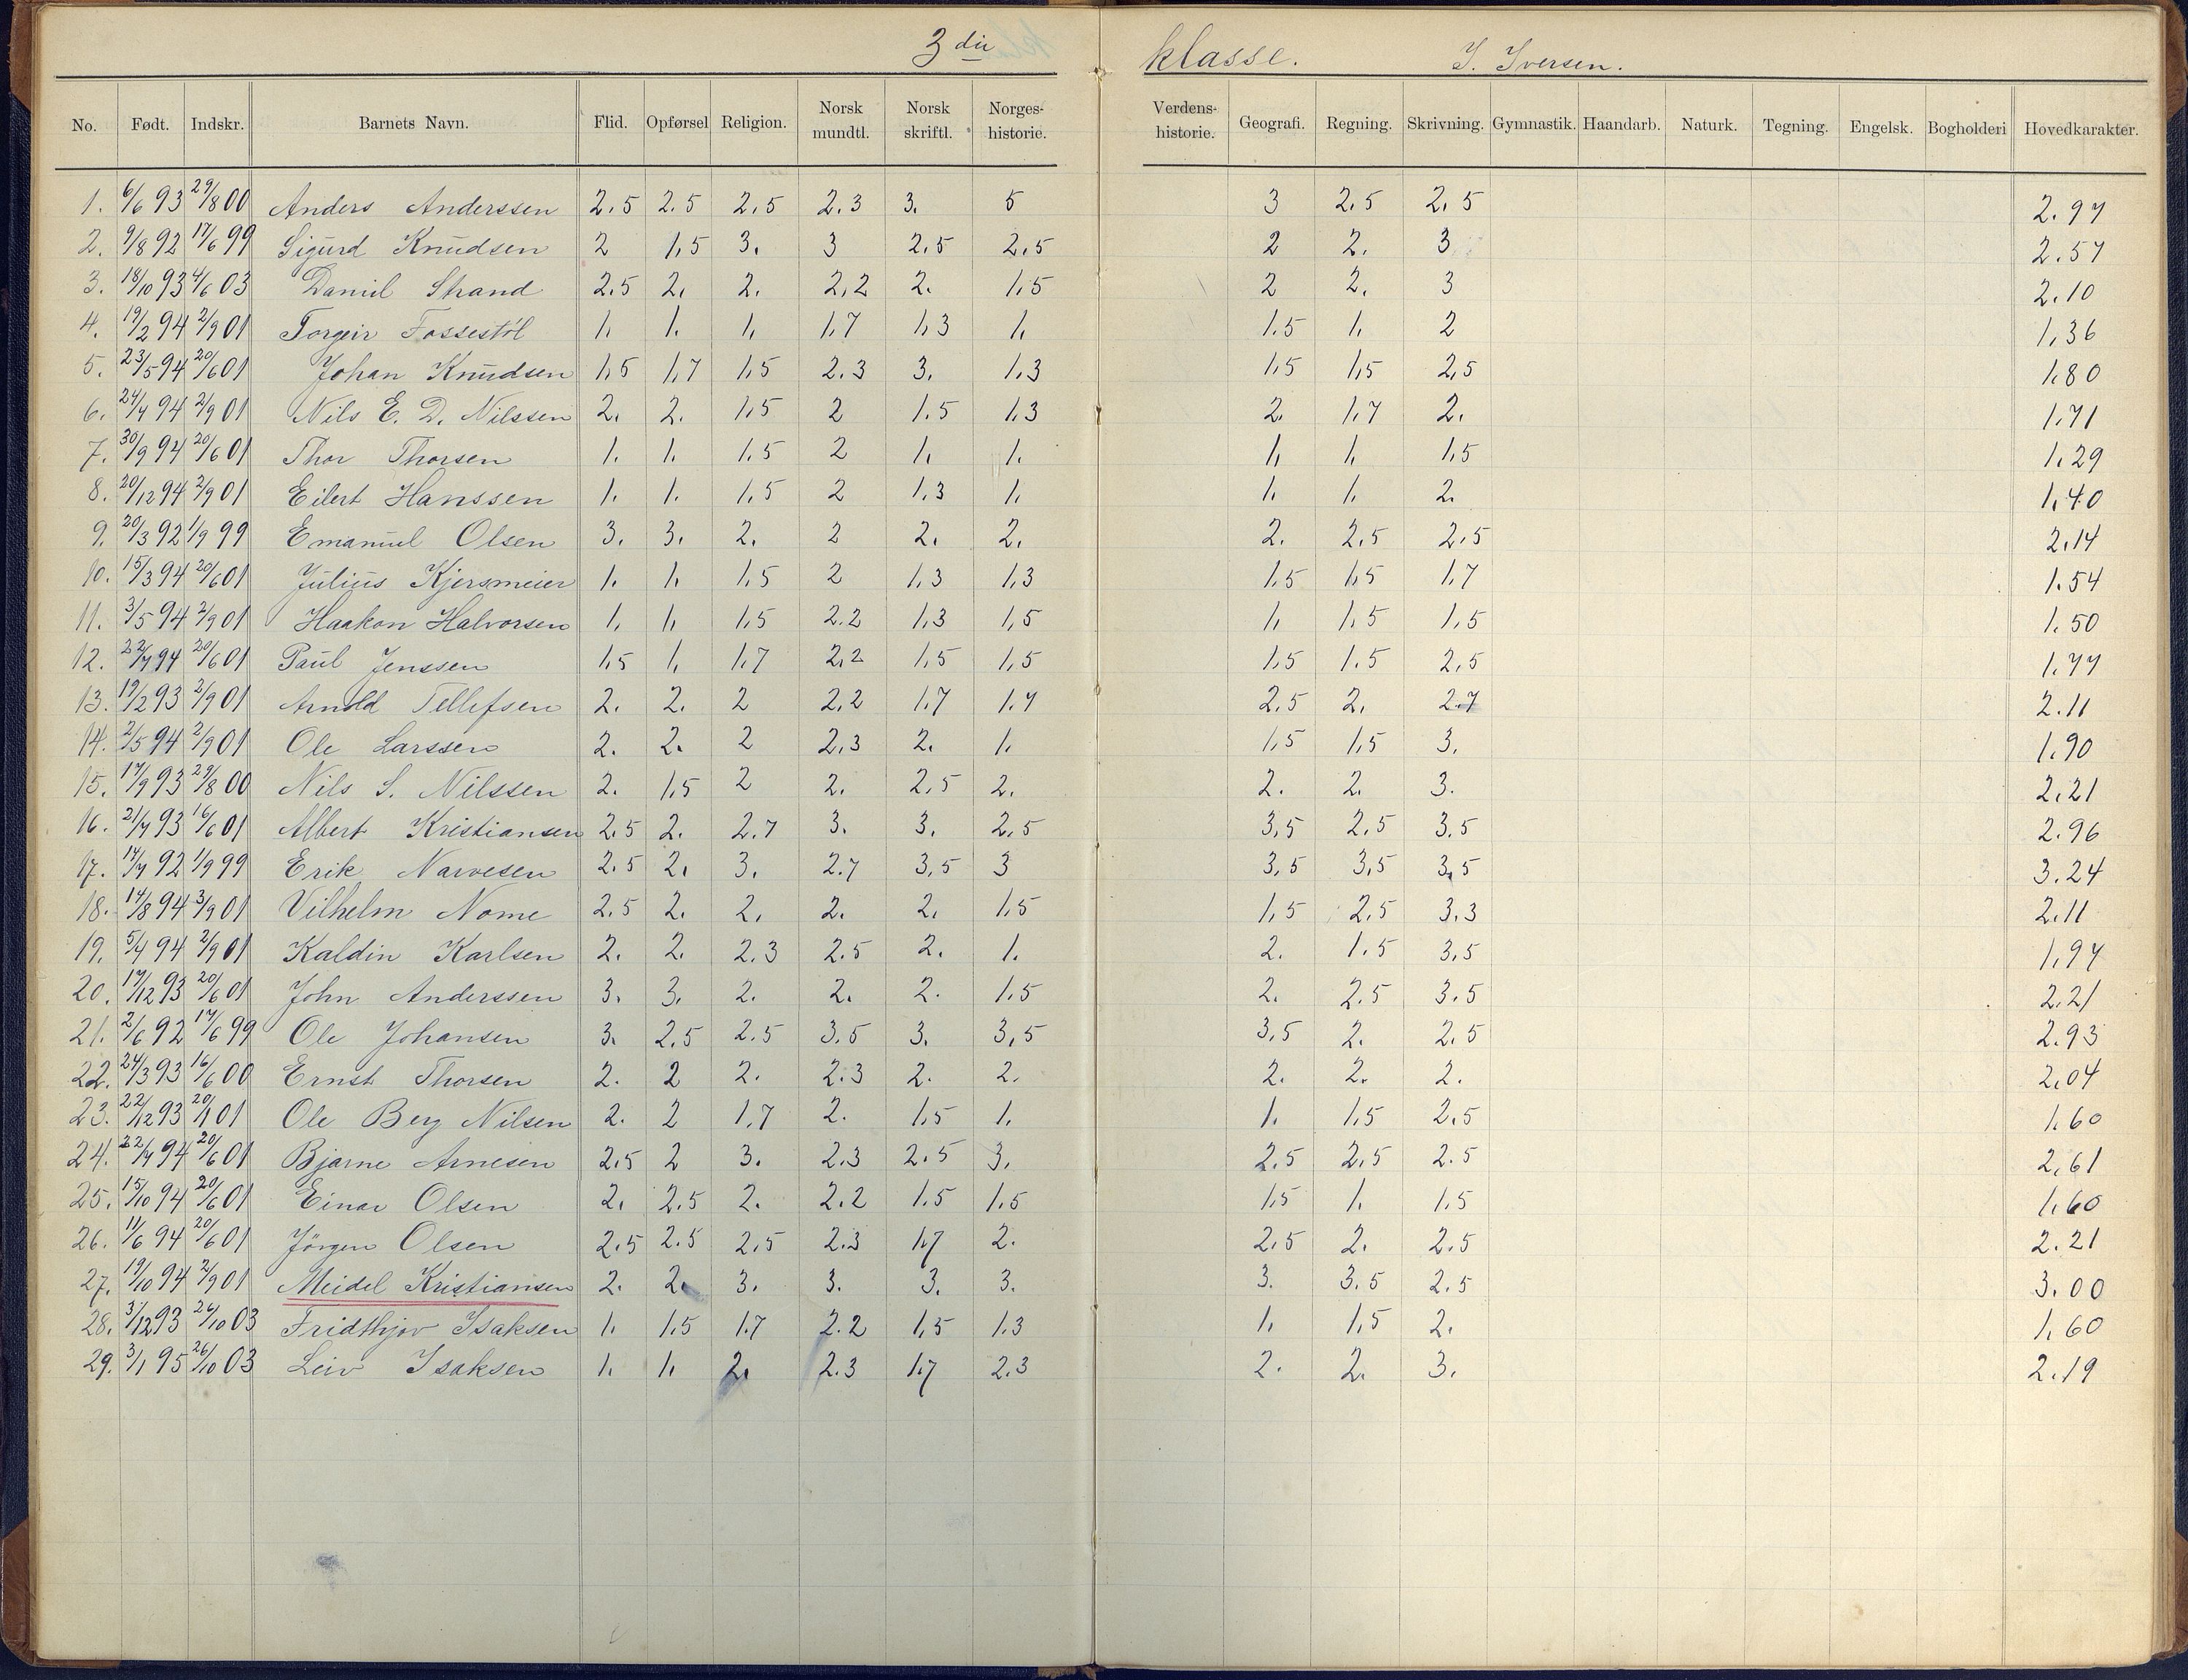 3die klasse. I. Iversen.
No. Født. Indskr. Barnets Navn. Flid. Opførsel Religion. Norsk mundtl. Norsk skriftl. Norges-historie. Verdens-historie. Geografi. Regning. Skrivning. Gymnastik. Haandarb. Naturk. Tegning. Engelsk. Bogholderi Hovedkarakter.
1. 6/6 93 29/8 00 Anders Anderssen 2,5 2.5 2,5 2.3 3. 5 3 2,5 2,5 2.97
2. 9/8 92 17/6 99 Sigurd Knudsen 2 1,5 3. 3 2,5 2,5 2 2. 3 2.57
3. 18/10 93 4/6 03 Daniel Strand 2.5 2, 2. 2,2 2. 1,5 2 2. 3 2.10
4. 19/2 94 2/9 01 Torgeir Fossestøl 1. 1. 1, 1,7 1,3 1, 1.5 1, 2 1,36
5. 23/5 94 20/6 01 Johan Knudsen 1,5 1,7 1,5 2.3 3. 1.3 1,5 1,5 2,5 1.80
6. 24/7 94 2/9 01 Nils E. D. Nilssen 2. 2. 1,5 2 1.5 1,3 2. 1,7 2. 1.71
7. 30/9 94 20/6 01 Thor Thorsen 1. 1. 1.5 2 1, 1. 1, 1, 1,5 1.29
8. 20/12 94 2/9 01 Eilert Hanssen 1. 1. 1,5 2 1,3 1, 1. 1. 2. 1,40
9. 20/3 92 1/9 99 Emanuel Olsen 3. 3. 2. 2 2. 2. 2. 2,5 2,5 2.14
10. 15/3 94 20/6 01 Julius Kjersmeier 1. 1. 1,5 2 1,3 1,3 1,5 1,5 1,7 1.54
11. 3/5 94 2/9 01 Haakon Halvorsen 1, 1, 1,5 2.2 1,3 1,5 1, 1,5 1,5 1.50
12. 22/7 94 20/6 01 Paul Jenssen 1,5 1, 1,7 2,2 1,5 1,5 1,5 1.5 2,5 1.77
13. 19/2 93 2/9 01 Arnold Tellefsen 2. 2. 2 2,2 1,7 1.7 2,5 2, 2.7 2.11
14. 2/5 94 2/9 01 Ole Larssen 2. 2. 2 2,3 2. 1. 1,5 1,5 3. 1.90
15. 17/9 93 29/8 00 Nils S. Nilssen 2. 1,5 2 2. 2,5 2. 2. 2. 3. 2.21
16. 21/7 93 16/6 01 Albert Kristiansen 2.5 2. 2.7 3. 3. 2,5 3,5 2.5 3.5 2.96
17. 14/7 92 1/9 99 Erik Narvesen 2.5 2, 3. 2.7 3,5 3 3,5 3,5 3,5 3.24
18. 14/8 94 3/9 01 Vilhelm Nome 2.5 2. 2, 2. 2, 1,5 1,5 2,5 3,3 2.11
19. 5/4 94 2/9 01 Kaldin Karlsen 2. 2. 2.3 2.5 2. 1. 2. 1.5 3,5 1,97
20. 17/12 93 20/6 01 John Anderssen 3. 3, 2. 2. 2. 1.5 2. 2.5 3.5 2.21
21. 2/6 92 17/6 99 Ole Johansen 3. 2,5 2.5 3.5 3. 3,5 3,5 2. 2.5 2.93
22. 24/3 93 16/6 00 Ernst Thorsen 2. 2 2. 2.3 2. 2. 2. 2. 2. 2,04
23. 22/12 93 20/1 01 Ole Berg Nilsen 2. 2 1,7 2. 1,5 1. 1. 1,5 2,5 1.60
24. 22/7 94 20/6 01 Bjarne Arnesen 2,5 2 3. 2.3 2.5 3. 2,5 2,5 2.5 2,61
25. 15/10 94 20/6 01 Einar Olsen 2. 2.5 2. 2.2 1.5 1.5 1,5 1. 1,5 1,60
26. 11/6 94 20/6 01 Jörgen Olsen 2.5 2.5 2,5 2.3 1,7 2. 2,5 2. 2.5 2.21
27. 19/10 94 2/9 01 Meidel Kristiansen 2. 2. 3. 3. 3. 3. 3. 3.5 2.5 3.00
28. 31/12 93 26/10 03 Fridthjov Isaksen 1. 1.5 1.7 2.2 1,5 1.3 1, 1,5 2. 1,60
29. 3/1 95 26/10 03 Leiv Isaksen 1. 1. 2. 2.3 1,7 2.3 2. 2. 3. 2.19